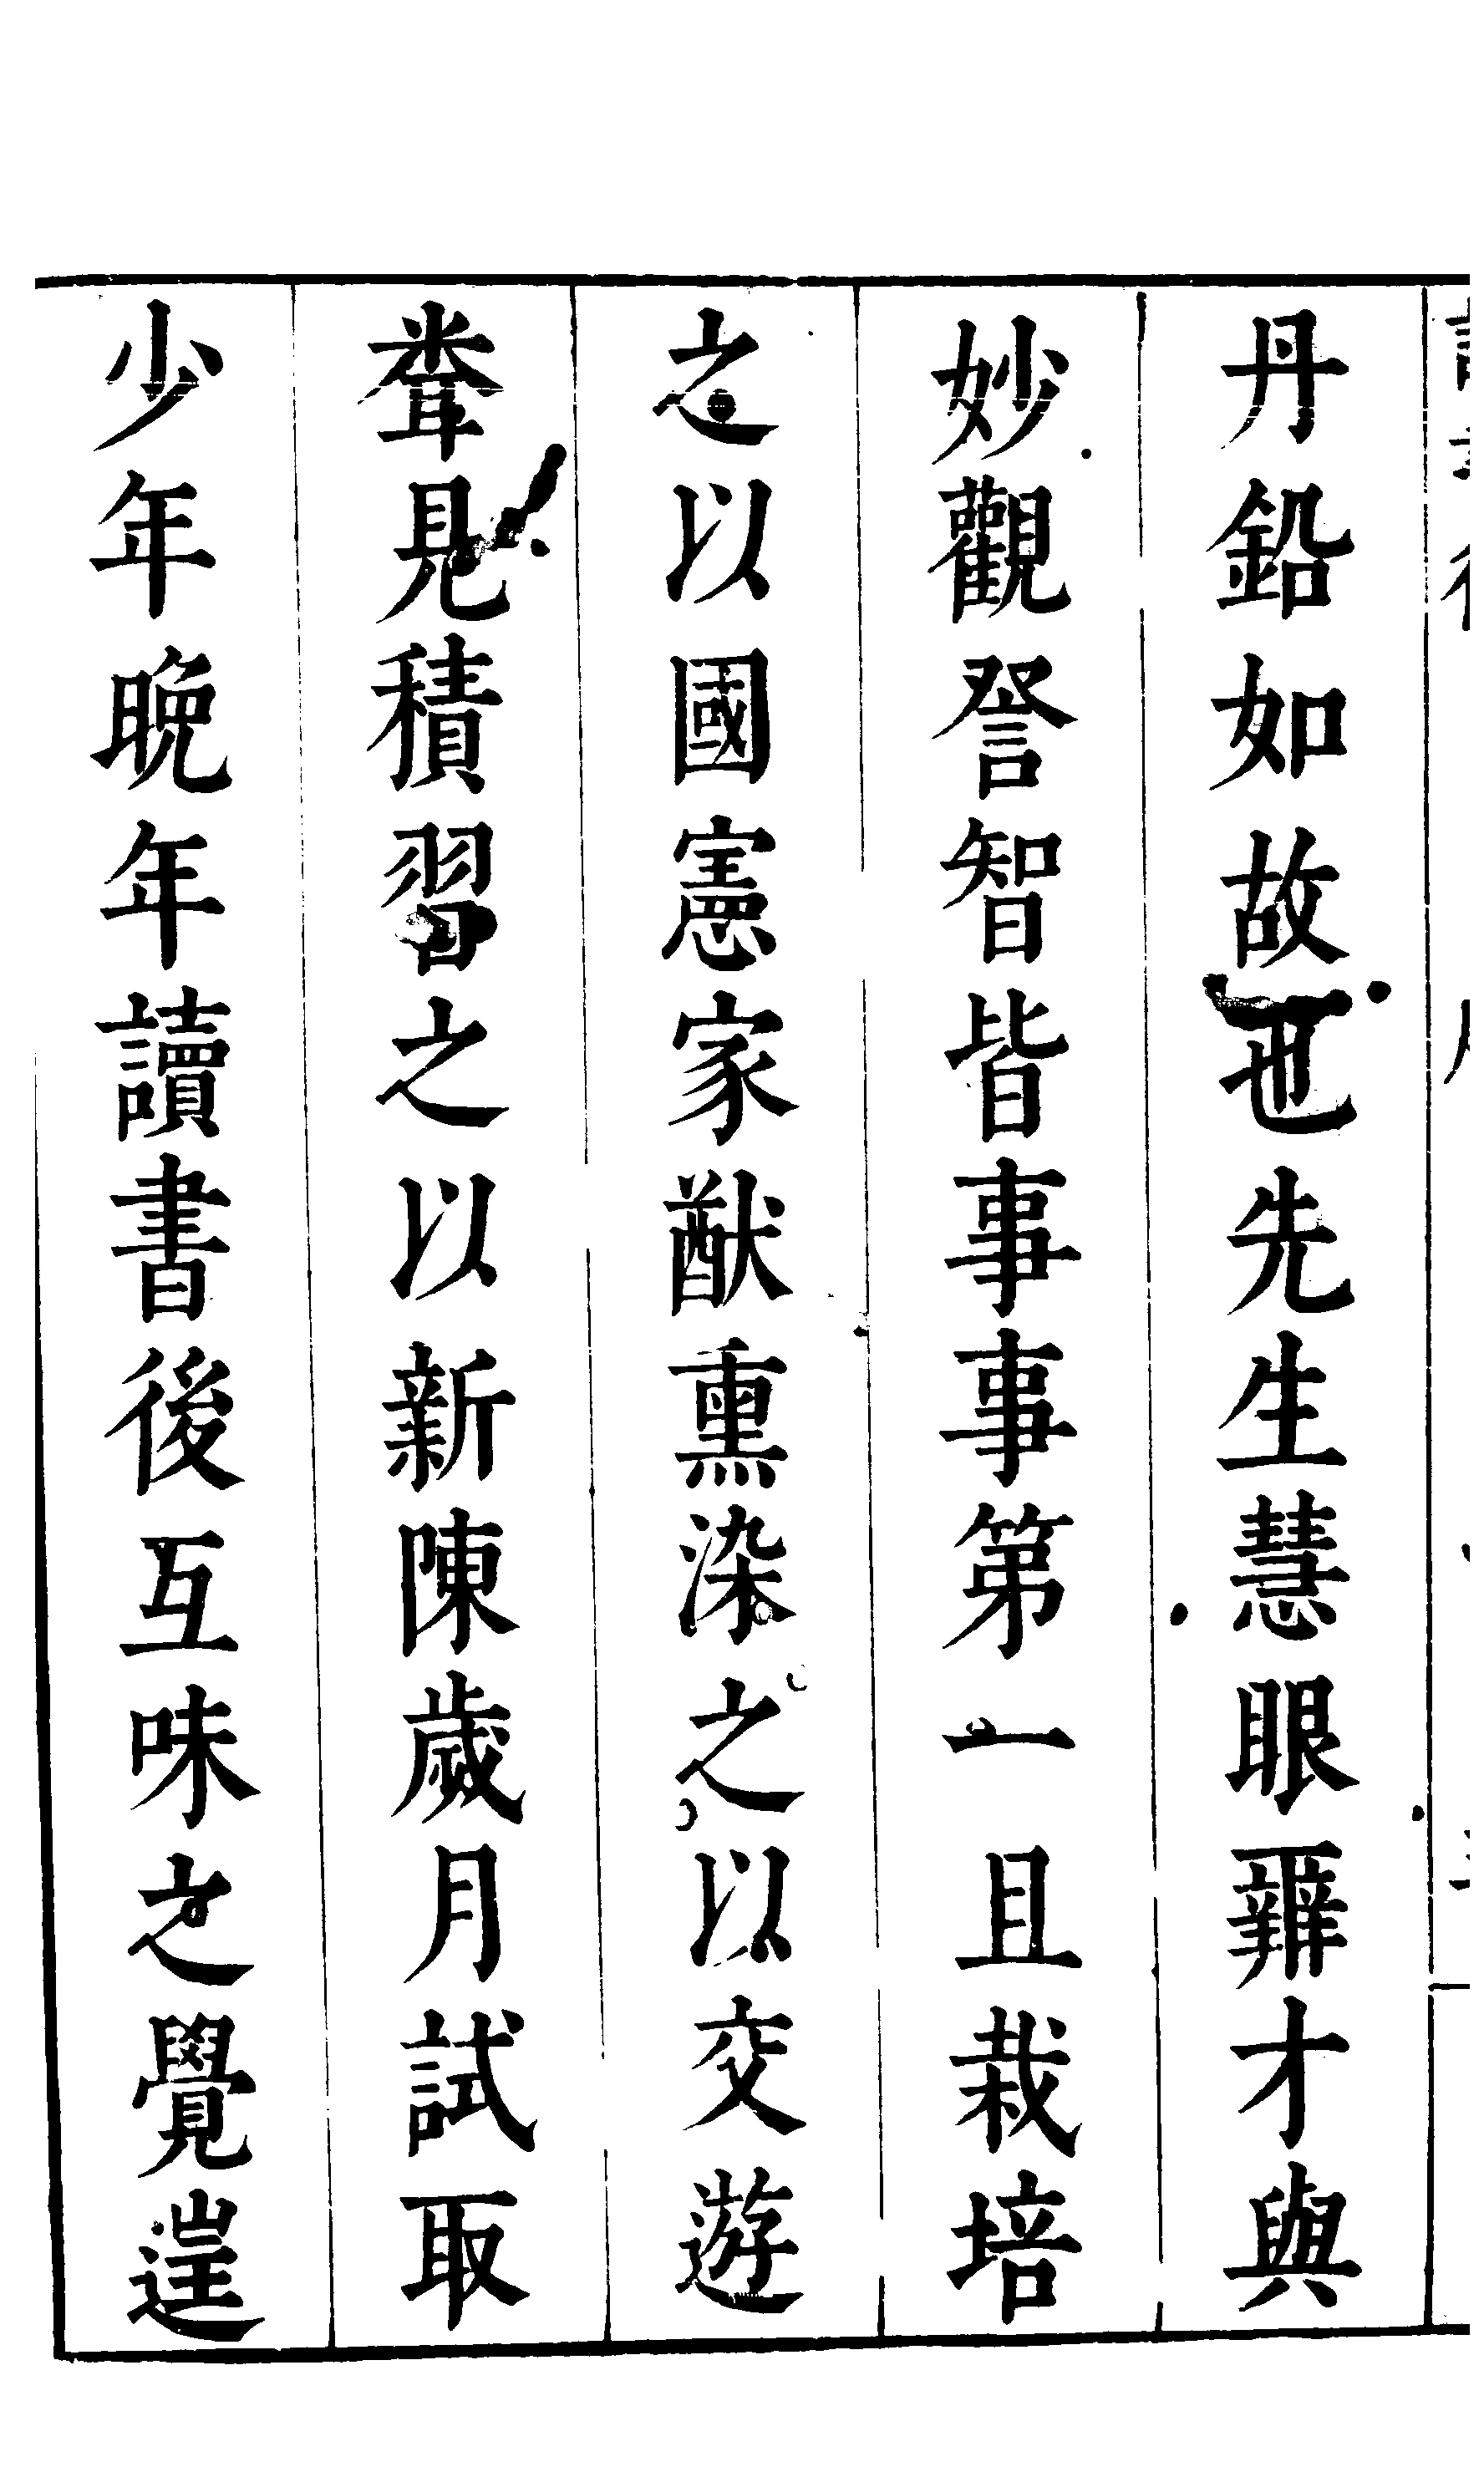 丹鉛如故也先生慧眼辨才與
妙觀詧智皆事事第一且栽培
之以國憲家猷熏染之以交遊
䎽見積習之以新陳歲月試取
少年晚年讀書後互味之覺